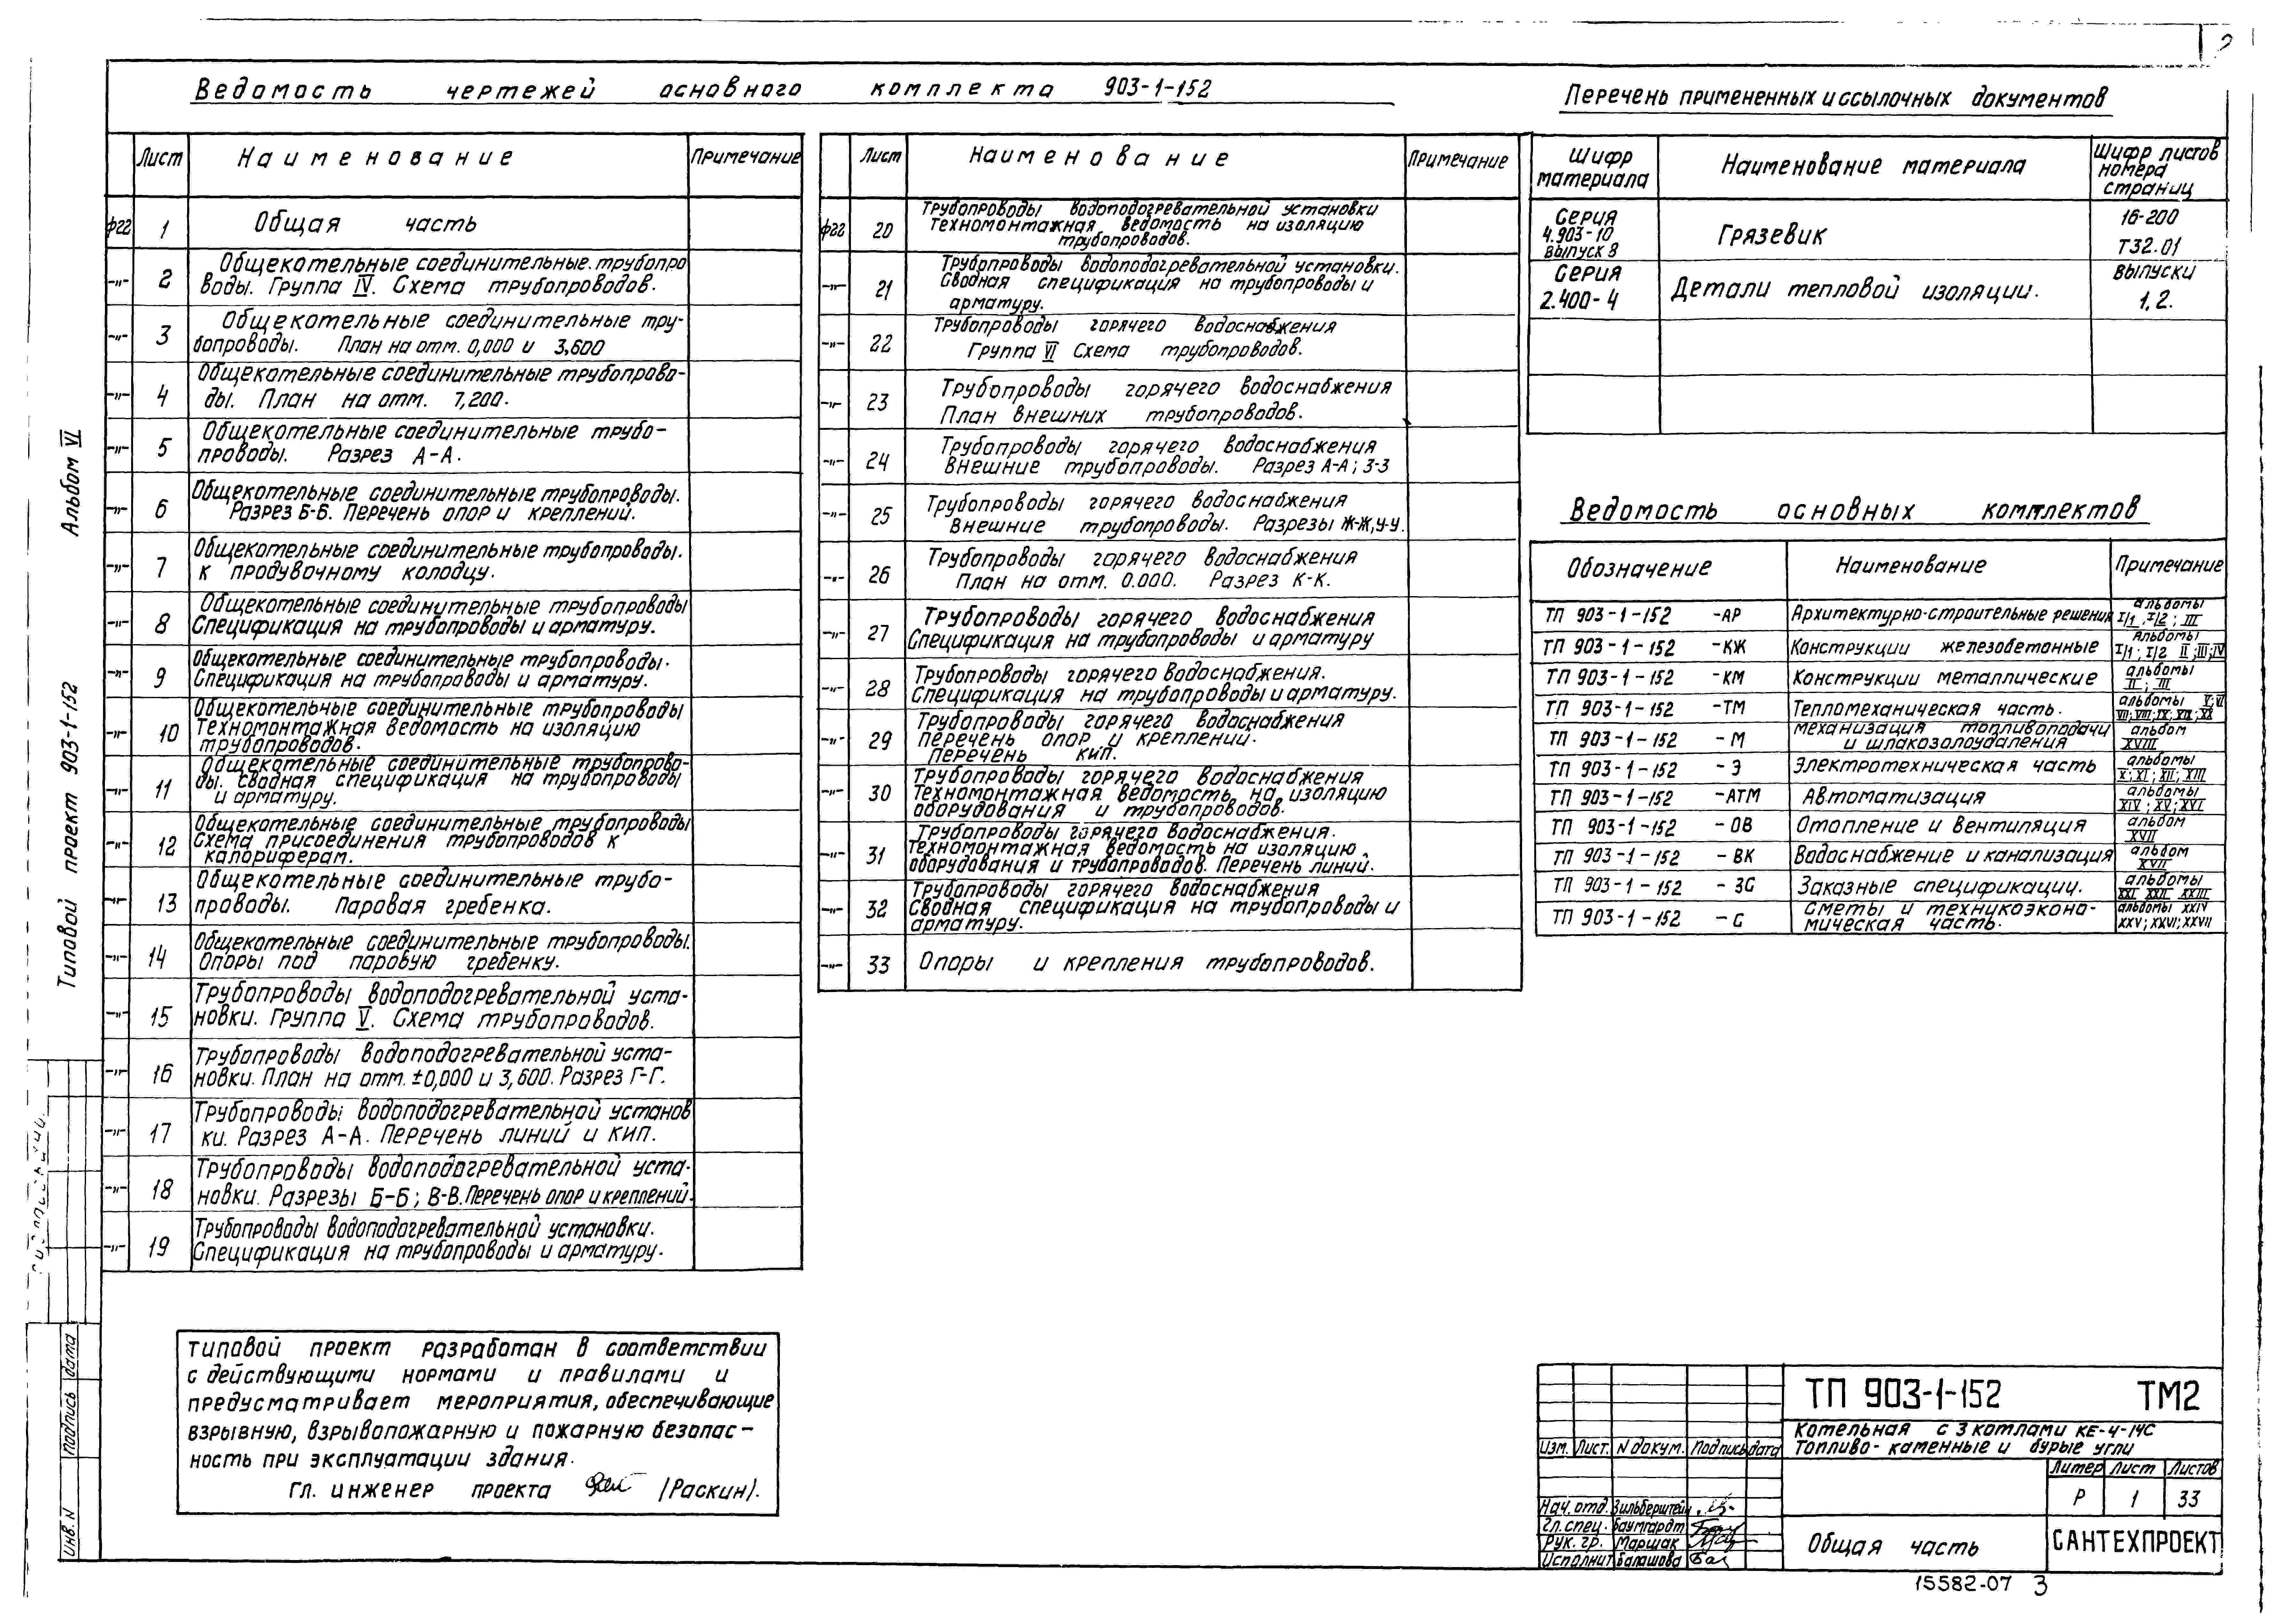 2
Ведомость чертежей основного комплекта 903-1-152
Лист Наименование Примечание
ФГГ 1 Общая часть
-"- 2 Общекотельные соединительные трубопро
воды. Группа IV. Схема трубопроводов.
-"- 3 Общекотельные соединительные тру-
бопроводы. План на отм. 0,000 и 3,600
-"- 4 Общекотельные соединительные трубопрово-
ды. План на отм. 7,200.
-"- 5 Общекотельные соединительные трубо-
проводы. Разрез А-А.
-"- 6 Общекотельные соединительные трубопроводы.
Разрез Б-Б. Перечень опор и креплений.
-"- 7 Общекотельные соединительные трубопроводы.
к продувочному колодцу.
-"- 8 Общекотельные соединительные трубопроводы
Спецификация на трубопроводы и арматуру.
-"- 9 Общекотельные соединительные трубопроводы.
Спецификация на трубопроводы и арматуру.
-"- 10 Общекотельные соединительные трубопроводы
Техномонтажная ведомость на изоляцию
трубопроводов.
-"- 11 Общекотельные соединительные трубопрово-
ды. Сводная спецификация на трубопроводы
и арматуру.
-"- 12 Общекотельные соединительные трубопроводы
Схема присоединения трубопроводов к
калориферам.
-"- 13 Общекотельные соединительные трубо-
проводы. Паровая гребенка.
-"- 14 Общекотельные соединительные трубопроводы.
Опоры под паровую гребенку.
-"- 15 Трубопроводы водоподогревательной уста-
новки. Группа V. Схема трубопроводов.
-"- 16 Трубопроводы водоподогревательной уста-
новки. План на отм. ±0,000 и 3,600. Разрез Г-Г.
-"- 17 Трубопроводы водоподогревательной установ
ки. Разрез А-А. Перечень линий и КИП.
-"- 18 Трубопроводы водоподогревательной уста-
новки. Разрезы Б-Б; В-В. Перечень опор и креплений.
-"- 19 Трубопроводы водоподогревательной установки.
Спецификация на трубопроводы и арматуру.
Лист Наименование Примечание
ФГГ 20 Трубопроводы водоподогревательной установки
Техномонтажная ведомость на изоляцию
трубопроводов.
-"- 21 Трубопроводы водоподогревательной установки.
Сводная спецификация на трубопроводы и
арматуру.
-"- 22 Трубопроводы горячего водоснабжения
Группа VI Схема трубопроводов.
-"- 23 Трубопроводы горячего водоснабжения
План внешних трубопроводов.
-"- 24 Трубопроводы горячего водоснабжения
Внешние трубопроводы. Разрез А-А; З-З
-"- 25 Трубопроводы горячего водоснабжения
Внешние трубопроводы. Разрезы Ж-Ж, У-У.
-"- 26 Трубопроводы горячего водоснабжения
План на отм. 0.000. Разрез К-К.
-"- 27 Трубопроводы горячего водоснабжения
Спецификация на трубопроводы и арматуру
-"- 28 Трубопроводы горячего водоснабжения.
Спецификация на трубопроводы и арматуру.
-"- 29 Трубопроводы горячего водоснабжения
перечень опор и креплений.
Перечень КИП.
-"- 30 Трубопроводы горячего водоснабжения
Техномонтажная ведомость на изоляцию
оборудования и трубопроводов.
-"- 31 Трубопроводы горячего водоснабжения.
Техномонтажная ведомость на изоляцию
оборудования и трубопроводов. Перечень линий.
-"- 32 Трубопроводы горячего водоснабжения
Сводная спецификация на трубопроводы и
арматуру.
-"- 33 Опоры и крепления трубопроводов.
Перечень примененных и ссылочных документов
Шифр материала Наименование материала Шифр листов номера страниц
Серия 4.903-10 выпуск 8 Грязевик 16-200 Т32.01
Серия 2.400-4 Детали тепловой изоляции. выпуски 1, 2.
Ведомость основных комплектов
Обозначение Наименование Примечание
ТП 903-1-152 -АР Архитектурно-строительные решения альбомы I/1, I/2; III
ТП 903-1-152 -КЖ Конструкции железобетонные Альбомы I/1; I/2 II; III; IV
ТП 903-1-152 -КМ Конструкции металлические альбомы II; III
ТП 903-1-152 -ТМ Тепломеханическая часть. альбомы V; VI
ТП 903-1-152 -М Механизация топливоподачи и шлакозолоудаления альбом XVIII
ТП 903-1-152 -Э Электротехническая часть альбомы X; XI; XII; XIII
ТП 903-1-152 -АТМ Автоматизация альбомы XIV; XV; XVI
ТП 903-1-152 -ОВ Отопление и вентиляция альбом XVII
ТП 903-1-152 -ВК Водоснабжение и канализация альбом XVII
ТП 903-1-152 -ЗС Заказные спецификации. альбомы XXI XXII XXIII
ТП 903-1-152 -С Сметы и техникоэконо-
мическая часть. альбомы XXIV XXV; XXVI; XXVII
Альбом VI
Типовой проект 903-1-152
Инв. N Подпись дата
Типовой проект разработан в соответствии
с действующими нормами и правилами и
предусматривает мероприятия, обеспечивающие
взрывную, взрывопожарную и пожарную безопас-
ность при эксплуатации здания.
Гл. инженер проекта /Раскин/.
ТП 903-1-152 ТМ2
Котельная с 3 котлами КЕ-4-14С
Топливо - каменные и бурые угли
Изм. Лист. N докум. Подпись дата
Литер Лист Листов
Р 1 33
Нач. отд. Зильберштейн
Гл. спец. Баумгардт
Рук. гр. Маршак
Исполнит Балашова
Общая часть
САНТЕХПРОЕКТ
15582-07 3